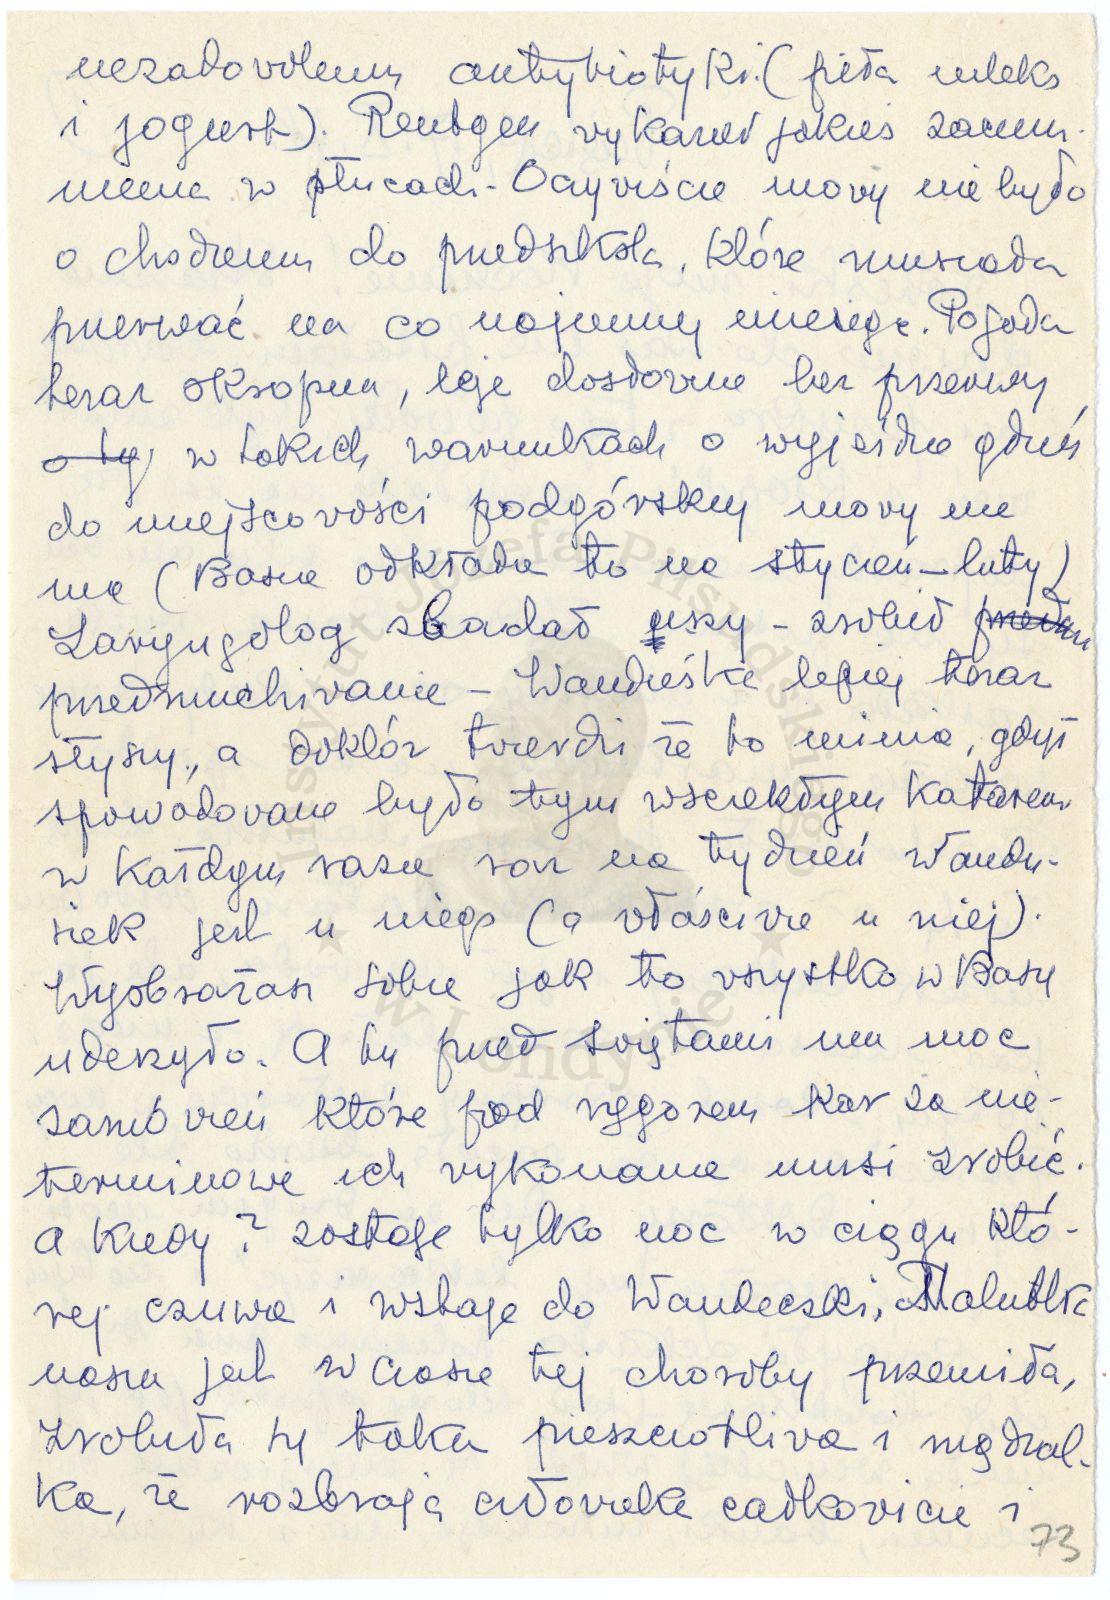 niezadowoleniu antybiotyki. (piła mleko
i jogurt). Rentgen wykazał jakieś zaciem-
nienia w płucach - Oczywiście mowy nie było
o chodzeniu do przedszkola, które musiała
przerwać na co najmniej miesiąc. Pogoda
teraz okropna, leje dosłownie bez przerwy
o ty w takich warunkach o wyjeździe gdzieś
do miejscowości podgórskiej mowy nie
ma (Basia odkłada to na styczeń - luty)
Laryngolog zbadał uszy - zrobił
przedmuchiwanie - Wandeczka lepiej teraz
słyszy, a doktór twierdzi że to minie, gdyż
spowodowane było tym wściekłym katarem
w każdym razie raz na tydzień Wandu-
siek jest u niego (a właściwie u niej).
Wyobrażasz sobie jak to wszystko w Basię
uderzyło. A tu przed świętami ma moc
zamówień które pod rygorem kar za nie-
terminowe ich wykonanie musi zrobić.
A kiedy? zostaje tylko noc w ciągu któ-
rej czuwa i wstaje do Wandeczki, Malutka
nasza jest w czasie tej choroby przemiła,
zrobiła się taka pieszczotliwa i mądral-
ka, że rozbraja człowieka całkowicie i
73
Instytut Józefa Piłsudskiego
w Londynie